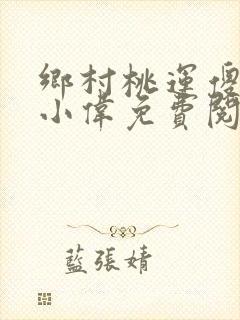 鄉村桃運傻
小偉免費閱
藍張婧